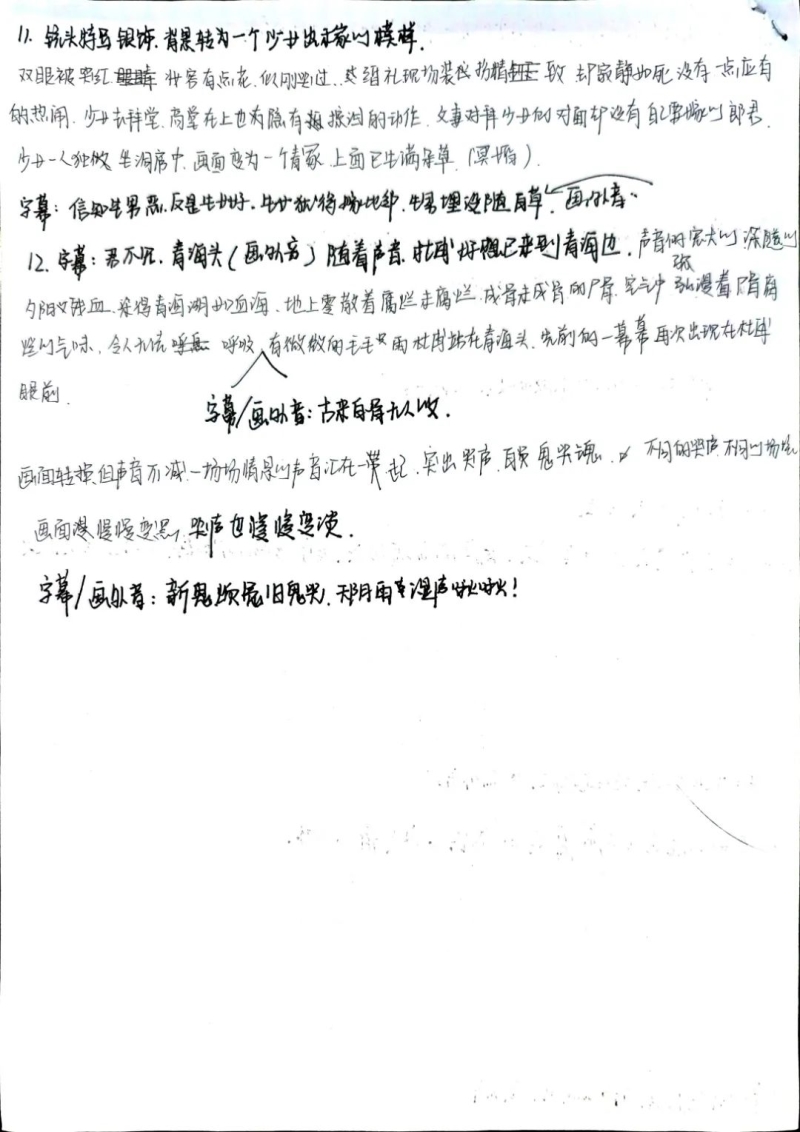 11. 镜头特写银饰．背景转为一个少女出嫁的模样．
双眼被哭红 妆容有点花．似刚哭过．婚礼现场装 精 致 却寂静如死 没有一点应有
的热闹．少女去拜堂．高堂在上也 有 的动作．夫妻对拜少女的对面却没有自己要嫁的郎君．
少女一人独 坐洞房中．画面变为一个青冢 上面已生满杂草．（冥婚）．
字幕：信知生男恶．反是生女好．生女犹得嫁比邻．生男埋没随百草．画外音．
12. 字幕：君不见．青海头（画外音）随着声音．杜甫好想已来到青海边．声音的宏大的 深
夕阳 血．染得青海湖如血海．地上零散着腐烂未腐烂．成骨未成骨的尸骨．空气中 弥漫着尸骨腐
烂的气味．令人无法 呼吸．有微微的毛毛 雨 杜甫站在青海头．先前的一幕幕再次出现在杜甫
眼前．
字幕/画外音：古来白骨无人收．
画面转换但声音不减．一场场情景的声音汇在一 起．突出哭声． 鬼哭 ．不同的哭声 不同的场
画面 慢慢变黑．哭声也慢慢变淡．
字幕/画外音：新鬼烦冤旧鬼哭．天阴雨 湿声啾啾！